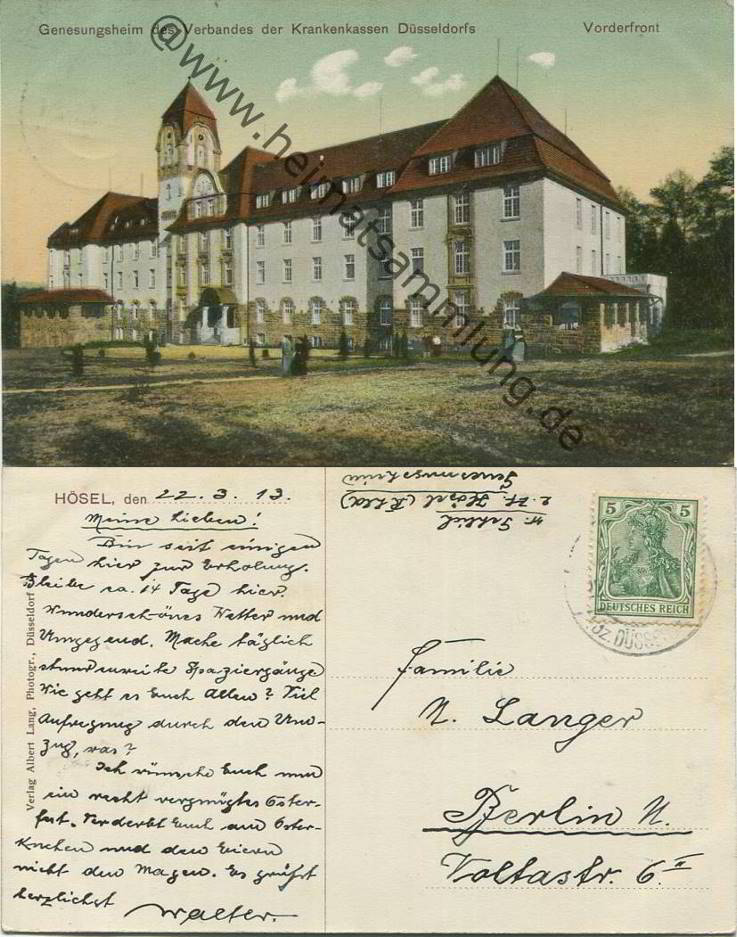 Genesungsheim des Verbandes der Krankenkassen Düsseldorfs
Vorderfront
@www.heimatsammlung.de
HÖSEL, den 22.3.13.
Meine Lieben!
Bin seit einigen
Tagen hier zur Erholung.
Bleibe ca. 14 Tage hier.
Wunderschönes Wetter und
Umgegend. Mache täglich
stundenweite Spaziergänge
Wie geht es Euch Allen? Viel
Aufregung durch den Um-
zug, was?
Ich wünsche Euch nun
ein recht vergnügtes Oster-
fest. Verderbt Euch am Oster-
kuchen und den Eiern
nicht den Magen. Es grüßt
herzlichst
Walter.
Verlag Albert Lang, Photogr., Düsseldorf
z. Zt. Hösel (Rhld)
Genesungsheim
5 5
DEUTSCHES REICH
DÜSSE
Familie
N. Langer
Berlin N.
Voltastr. 6 II